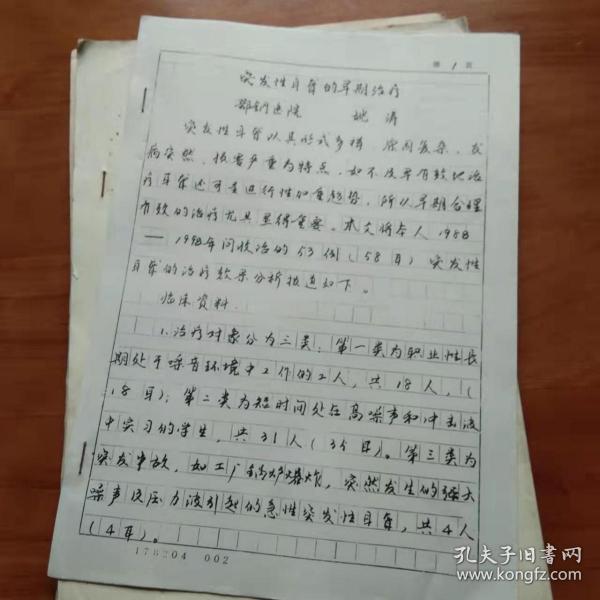 第 1 页
突发性耳聋的早期治疗
邯钢医院 姚涛
突发性耳聋以其形式多样、原因复杂、发
病突然、损害严重为特点，如不及早有效地治
疗耳聋还可呈进行性加重趋势，所以早期合理
有效的治疗尤其显得重要。本文将本人1988
——1998年间收治的53例（58耳）突发性
耳聋的治疗效果分析报道如下。
临床资料
1.治疗对象分为三类：第一类为职业性长
期处于噪音环境中工作的工人，共18人，（
18耳）；第二类为短时间处在高噪声和冲击波
中实习的学生，共31人（35耳）。第三类为
突发事故，如工厂锅炉爆炸，突然发生的强大
噪声及压力波引起的急性突发性耳聋，共4人
（4耳）。
178204 002
孔夫子旧书网
www.kongfz.com